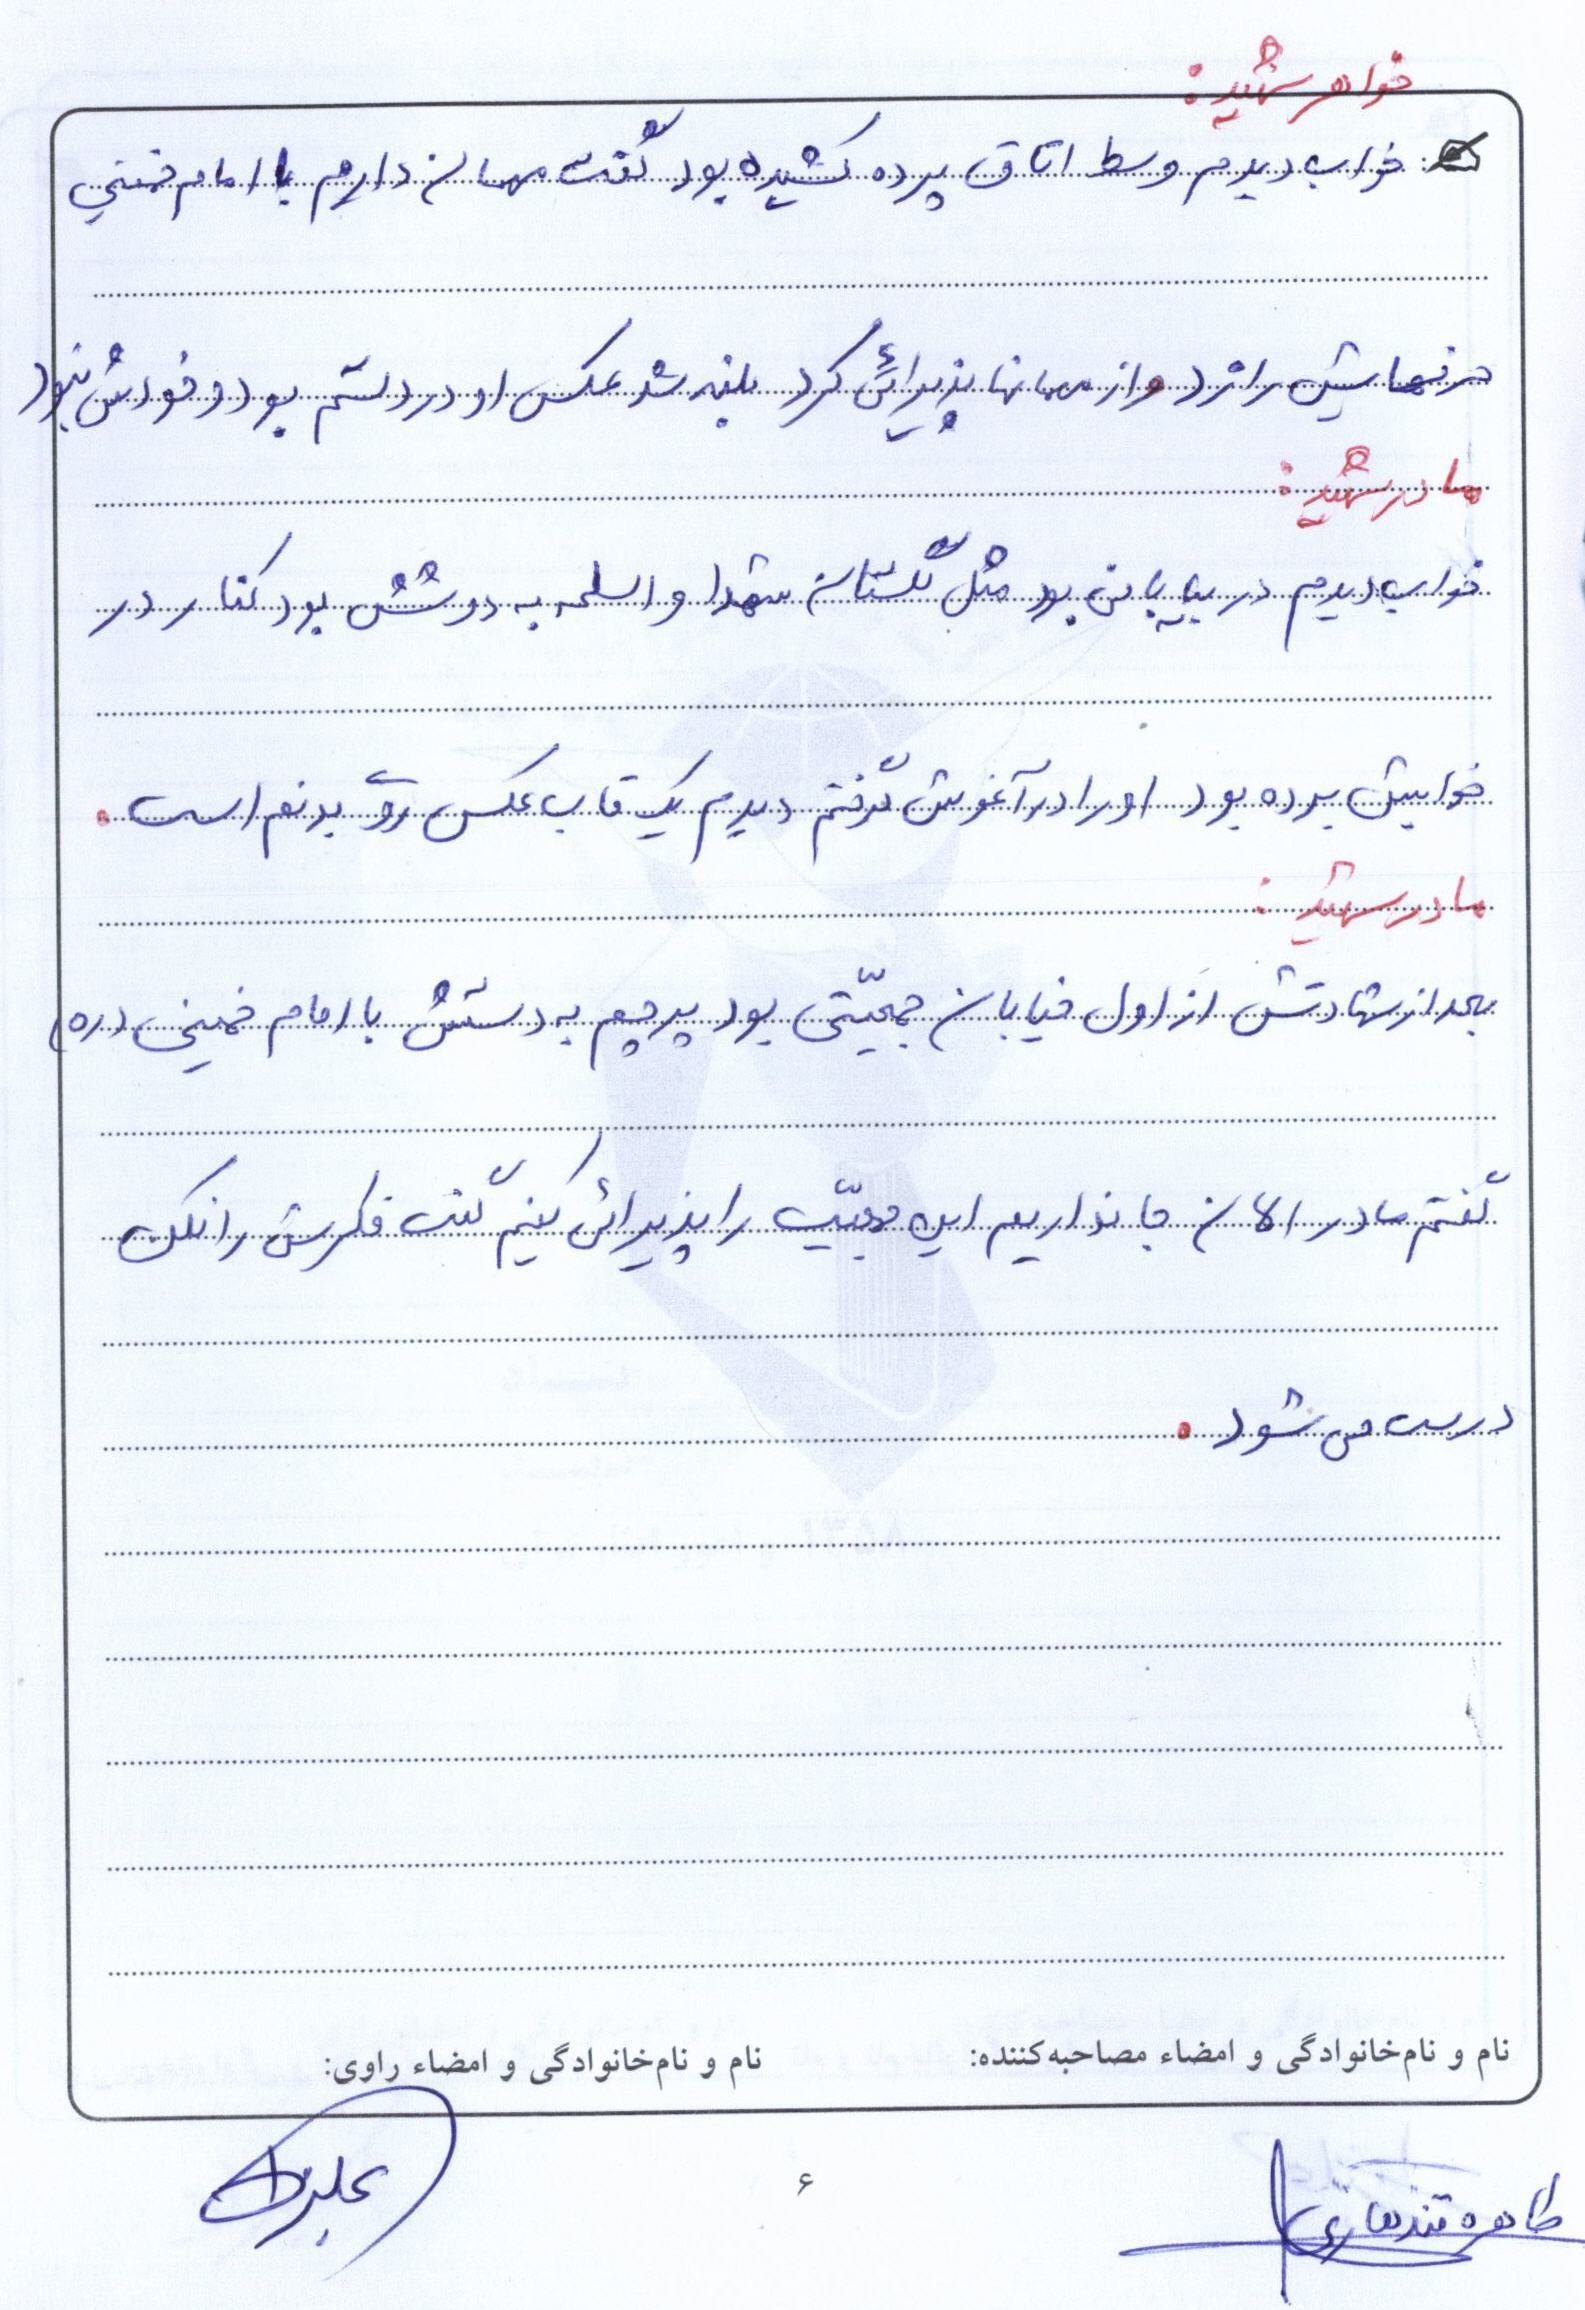 خواهر شهید:
: خواب دیدم وسط اتاق پرده کشیده بود گفت مهمان دارم با امام خمینی
حرفهایش را زد و از مهمانها پذیرائی کرد بلند شد عکس او در دستم بود و خودش نبود
مادر شهید:
خواب دیدم در بیابانی بود مثل گلستان شهدا و اسلحه به دوشش بود کنار در
خوابش برده بود او را در آغوش گرفتم دیدم یک قاب عکس روی بدنم است.
مادر شهید:
بعد از شهادتش از اول خیابان جمعیّتی بود پرچم به دستش با امام خمینی
گفتم مادر الان جا نداریم این جمعیّت را پذیرائی کنیم گفت فکرش را نکن
درست می شود.
نام و نام‌خانوادگی و امضاء مصاحبه‌کننده: نام و نام‌خانوادگی و امضاء راوی:
طاهره قندهاری
۶